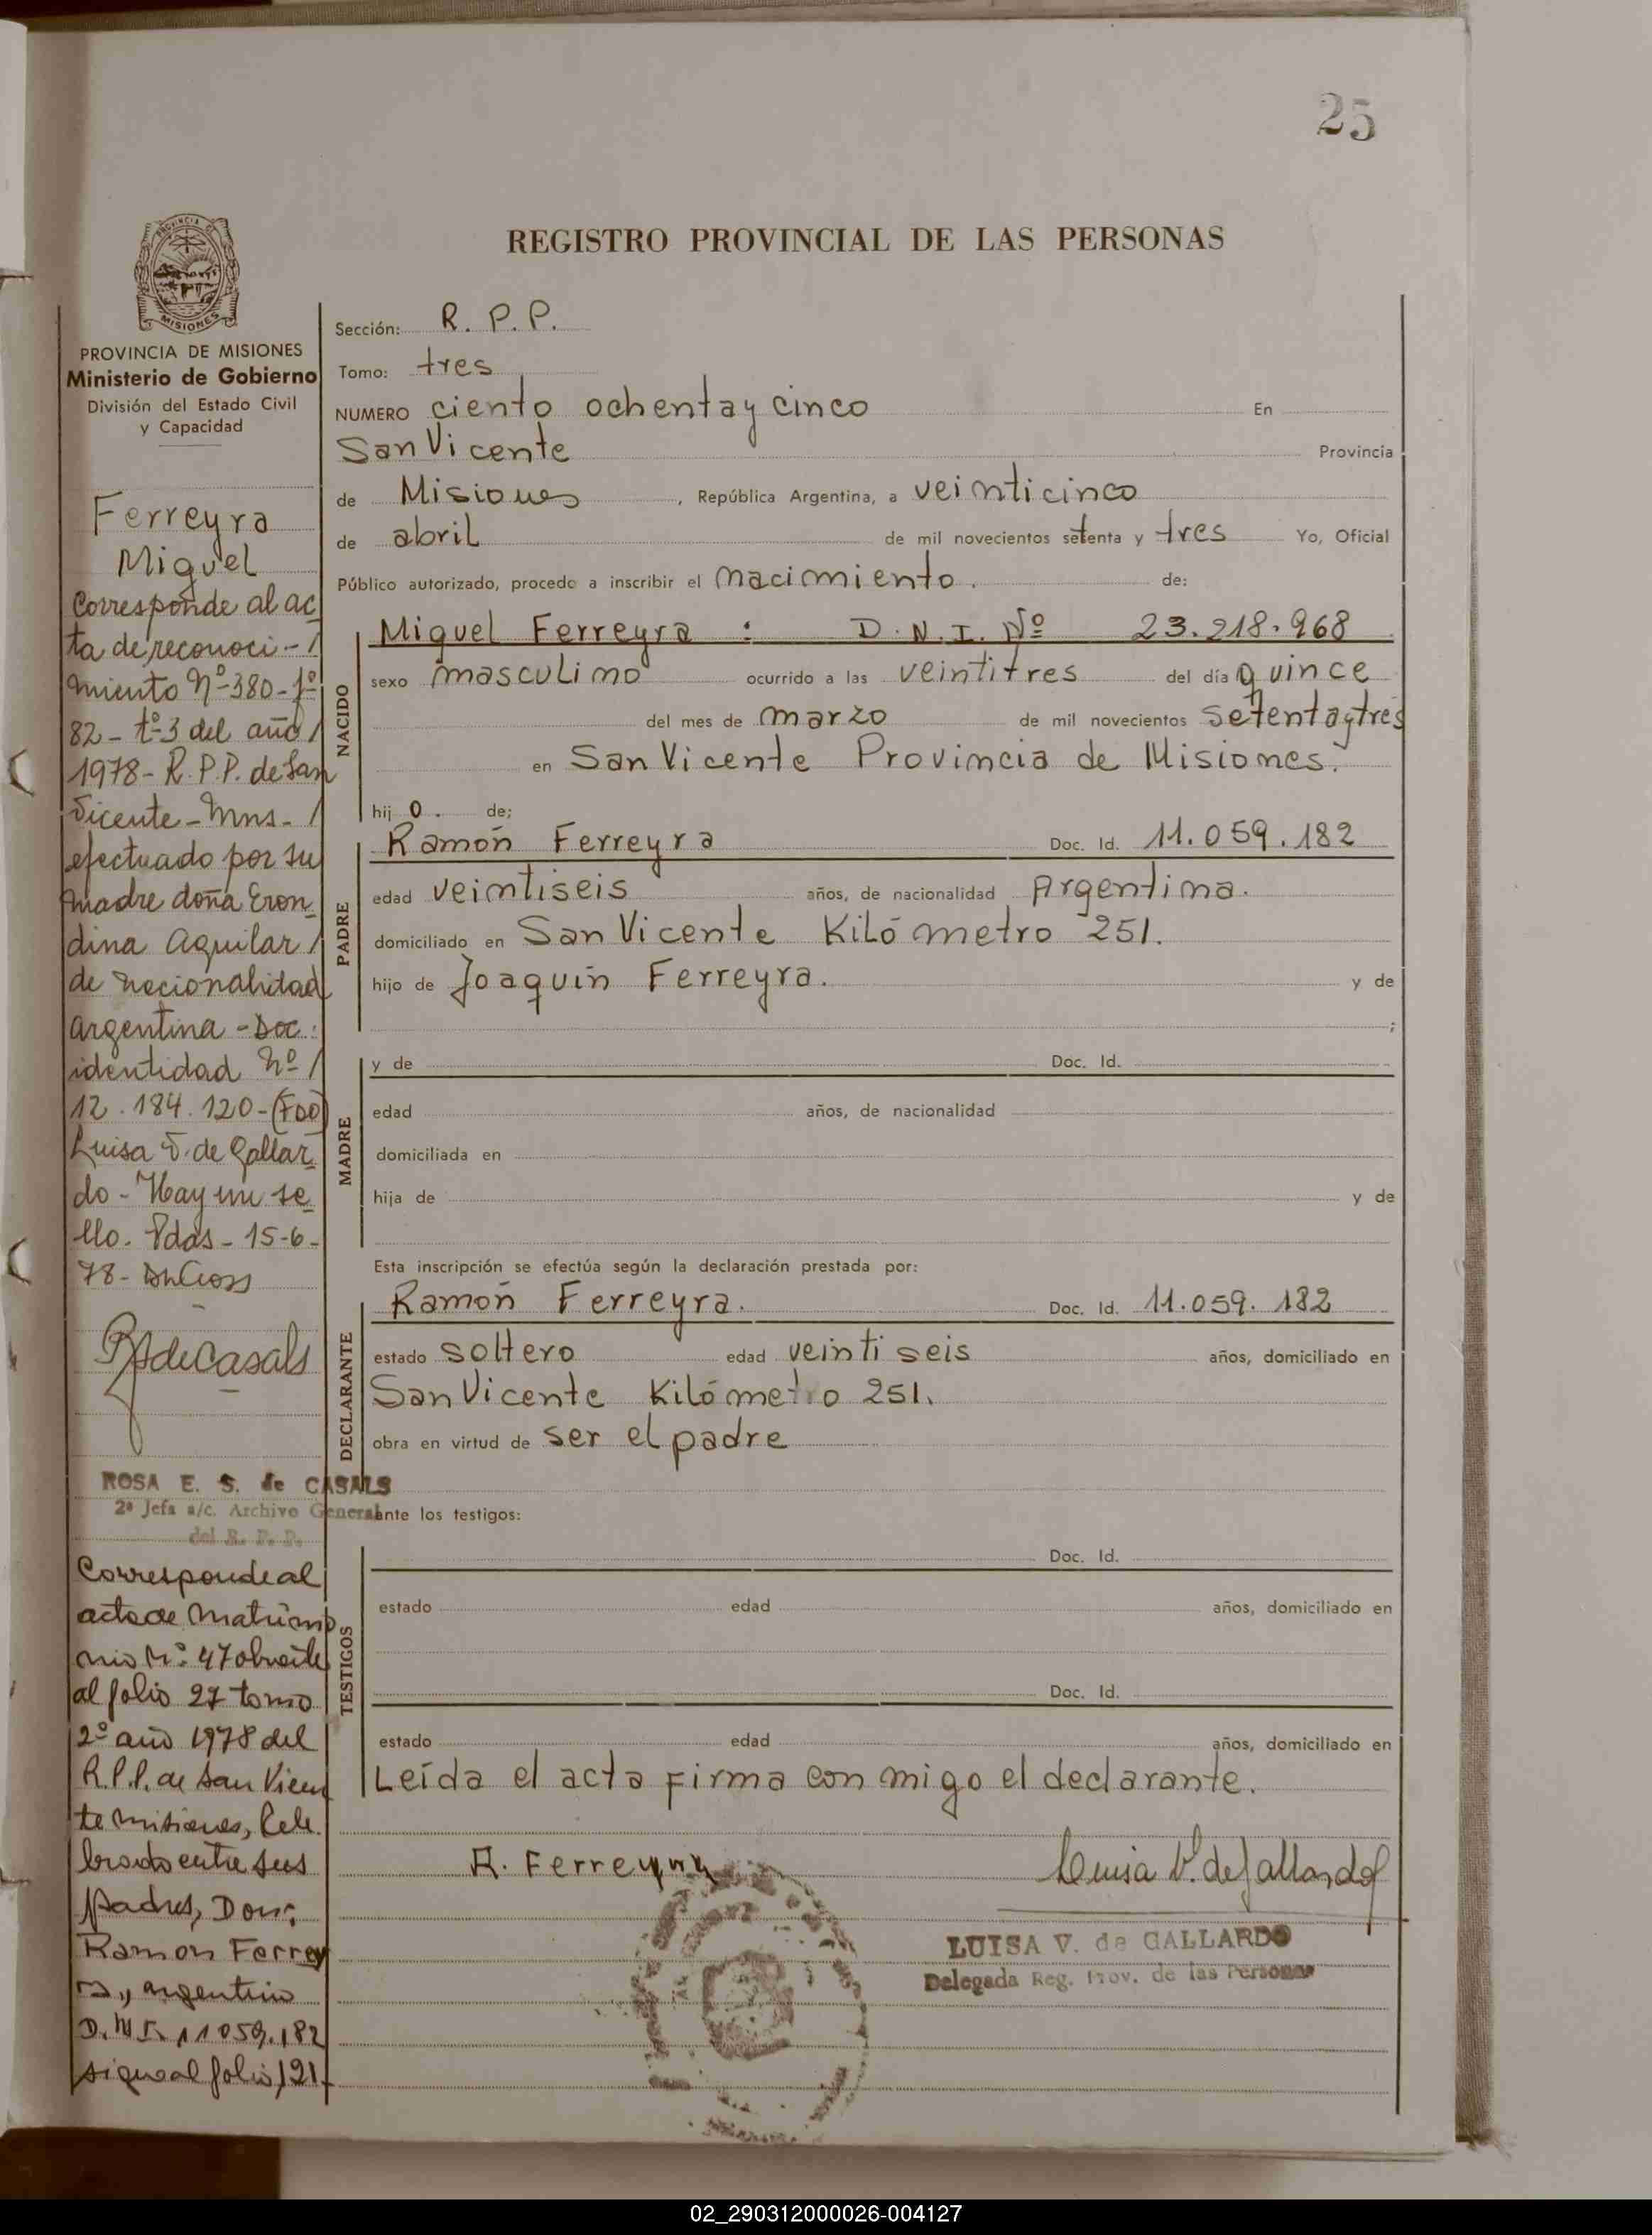 25
REGISTRO PROVINCIAL DE LAS PERSONAS
PROVINCIA DE
MISIONES
PROVINCIA DE MISIONES
Ministerio de Gobierno
División del Estado Civil
y Capacidad
Ferreyra
Miguel
Corresponde al ac
ta de reconoci-/
miento Nº-380-fº
82-tº-3 del año/
1978-R.P.P. de San
Vicente-Mns-/
efectuado por su
madre doña Eron
dina Aguilar/
de nacionalidad
argentina-Doc:
identidad Nº/
12.184.120-(FDO)
Luisa V. de Gallar
do-Hay un se
llo. Pdas-15-6-
78-
RdeCasals
ROSA E. S. de CASALS
2ª Jefa a/c. Archivo General
del R. P. P.
Corresponde al
acta de matrimo
nio Nº: 47 obrante
al folio 27 tomo
2º año 1978 del
R.P.P. de San Vicen
te Misiones, Cele
brado entre sus
padres, Don:
Ramon Ferrey
ra, argentino
D.N.I. 11059.182
sigue al folio 121-
Sección: R. P. P.
Tomo: tres
NUMERO ciento ochenta y cinco En
San Vicente Provincia
de Misiones, República Argentina, a veinticinco
de abril de mil novecientos setenta y tres Yo, Oficial
Público autorizado, procedo a inscribir el nacimiento. de:
NACIDO
Miguel Ferreyra : D.N.I. Nº 23.218.968
sexo masculino ocurrido a las veintitres del día quince
del mes de marzo de mil novecientos setenta y tres
en San Vicente Provincia de Misiones.
hij o. de;
PADRE
Ramón Ferreyra Doc. Id. 11.059.182
edad veintiseis años, de nacionalidad Argentina.
domiciliado en San Vicente Kilómetro 251.
hijo de Joaquín Ferreyra. y de
;
MADRE
y de Doc. Id.
edad años, de nacionalidad
domiciliada en
hija de y de
Esta inscripción se efectúa según la declaración prestada por:
DECLARANTE
Ramón Ferreyra. Doc. Id. 11.059.182
estado soltero edad veinti seis años, domiciliado en
San Vicente Kilómetro 251.
obra en virtud de ser el padre
ante los testigos:
TESTIGOS
Doc. Id.
estado edad años, domiciliado en
Doc. Id.
estado edad años, domiciliado en
Leída el acta firma con migo el declarante.
R. Ferreyra
Luisa V. de Gallardo
LUISA V. de GALLARDO
Delegada Reg. Prov. de las Personas
02_290312000026-004127